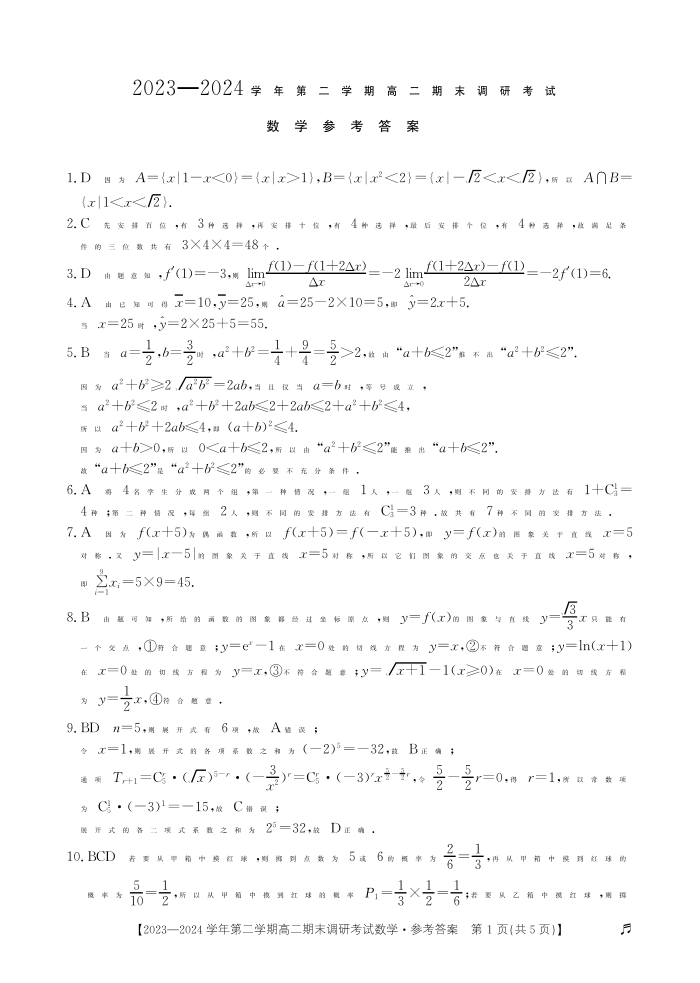 2023—2024学年第二学期高二期末调研考试
数学参考答案
1. D 因为 A={x|1-x<0}={x|x>1},B={x|x²<2}={x|-√2<x<√2},所以 A∩B=
{x|1<x<√2}.
2. C 先安排百位,有 3 种选择,再安排十位,有 4 种选择,最后安排个位,有 4 种选择,故满足条
件的三位数共有 3×4×4=48 个.
3. D 由题意知,f′(1)=-3,则 lim_{Δx→0} (f(1)-f(1+2Δx))/Δx=-2 lim_{Δx→0} (f(1+2Δx)-f(1))/2Δx=-2f′(1)=6.
4. A 由已知可得 x̄=10,ȳ=25,则 â=25-2×10=5,即 ŷ=2x+5.
当 x=25 时,ŷ=2×25+5=55.
5. B 当 a=1/2,b=3/2 时,a²+b²=1/4+9/4=5/2>2,故由“a+b≤2”推不出“a²+b²≤2”.
因为 a²+b²≥2√(a²b²)=2ab,当且仅当 a=b 时,等号成立,
当 a²+b²≤2 时,a²+b²+2ab≤2+2ab≤2+a²+b²≤4,
所以 a²+b²+2ab≤4,即 (a+b)²≤4.
因为 a+b>0,所以 0<a+b≤2,所以由“a²+b²≤2”能推出“a+b≤2”.
故“a+b≤2”是“a²+b²≤2”的必要不充分条件.
6. A 将 4 名学生分成两个组,第一种情况,一组 1 人,一组 3 人,则不同的安排方法有 1+C₃¹=
4 种;第二种情况,每组 2 人,则不同的安排方法有 C₃¹=3 种.故共有 7 种不同的安排方法.
7. A 因为 f(x+5)为偶函数,所以 f(x+5)=f(-x+5),即 y=f(x)的图象关于直线 x=5
对称.又 y=|x-5|的图象关于直线 x=5 对称,所以它们图象的交点也关于直线 x=5 对称,
即 ∑_{i=1}^{9} xᵢ=5×9=45.
8. B 由题可知,所给的函数的图象都经过坐标原点,则 y=f(x)的图象与直线 y=√3/3 x 只能有
一个交点,①符合题意;y=eˣ-1 在 x=0 处的切线方程为 y=x,②不符合题意;y=ln(x+1)
在 x=0 处的切线方程为 y=x,③不符合题意;y=√(x+1)-1(x≥0)在 x=0 处的切线方程
为 y=1/2 x,④符合题意.
9. BD n=5,则展开式有 6 项,故 A 错误;
令 x=1,则展开式的各项系数之和为(-2)⁵=-32,故 B 正确;
通项 T_{r+1}=C₅ʳ·(√x)^{5-r}·(-3/x²)ʳ=C₅ʳ·(-3)ʳx^{5/2-5/2r},令 5/2-5/2r=0,得 r=1,所以常数项
为 C₅¹·(-3)¹=-15,故 C 错误;
展开式的各二项式系数之和为 2⁵=32,故 D 正确.
10. BCD 若要从甲箱中摸红球,则掷到点数为 5 或 6 的概率为 2/6=1/3,再从甲箱中摸到红球的
概率为 5/10=1/2,所以从甲箱中摸到红球的概率 P₁=1/3×1/2=1/6;若要从乙箱中摸红球,则掷
【2023—2024 学年第二学期高二期末调研考试数学·参考答案 第 1 页(共 5 页)】 ♬